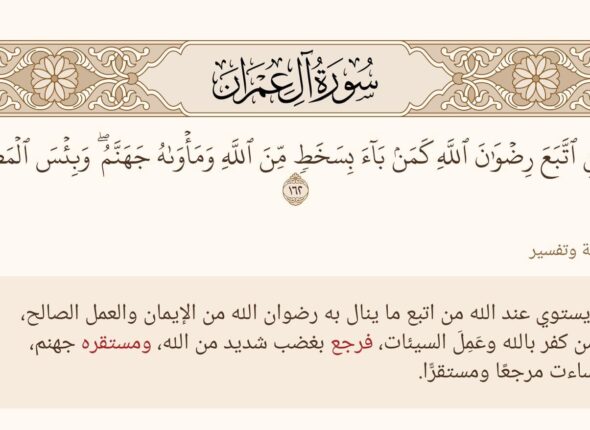 سُورَةُ آلِ عِمْرَان
ٱتَّبَعَ رِضْوَٰنَ ٱللَّهِ كَمَنۢ بَآءَ بِسَخَطٍۢ مِّنَ ٱللَّهِ وَمَأْوَىٰهُ جَهَنَّمُ ۖ وَبِئْسَ
١٦٢
وتفسير
يستوي عند الله من اتبع ما ينال به رضوان الله من الإيمان والعمل الصالح،
كفر بالله وعَمِلَ السيئات، فرجع بغضب شديد من الله، ومستقره جهنم،
مرجعًا ومستقرًا.